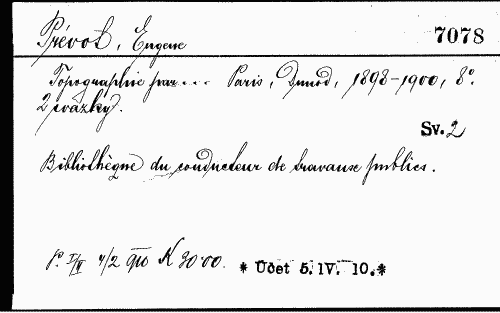 Prévot, Eugene 7078
Topographie par.... Paris, Dunod, 1898-1900, 8°.
2 svazky.
Sv. 2
Bibliothègne du conducteur de travaux publics.
4/2 910 K 30·00. * Účet 5. IV. 10.*